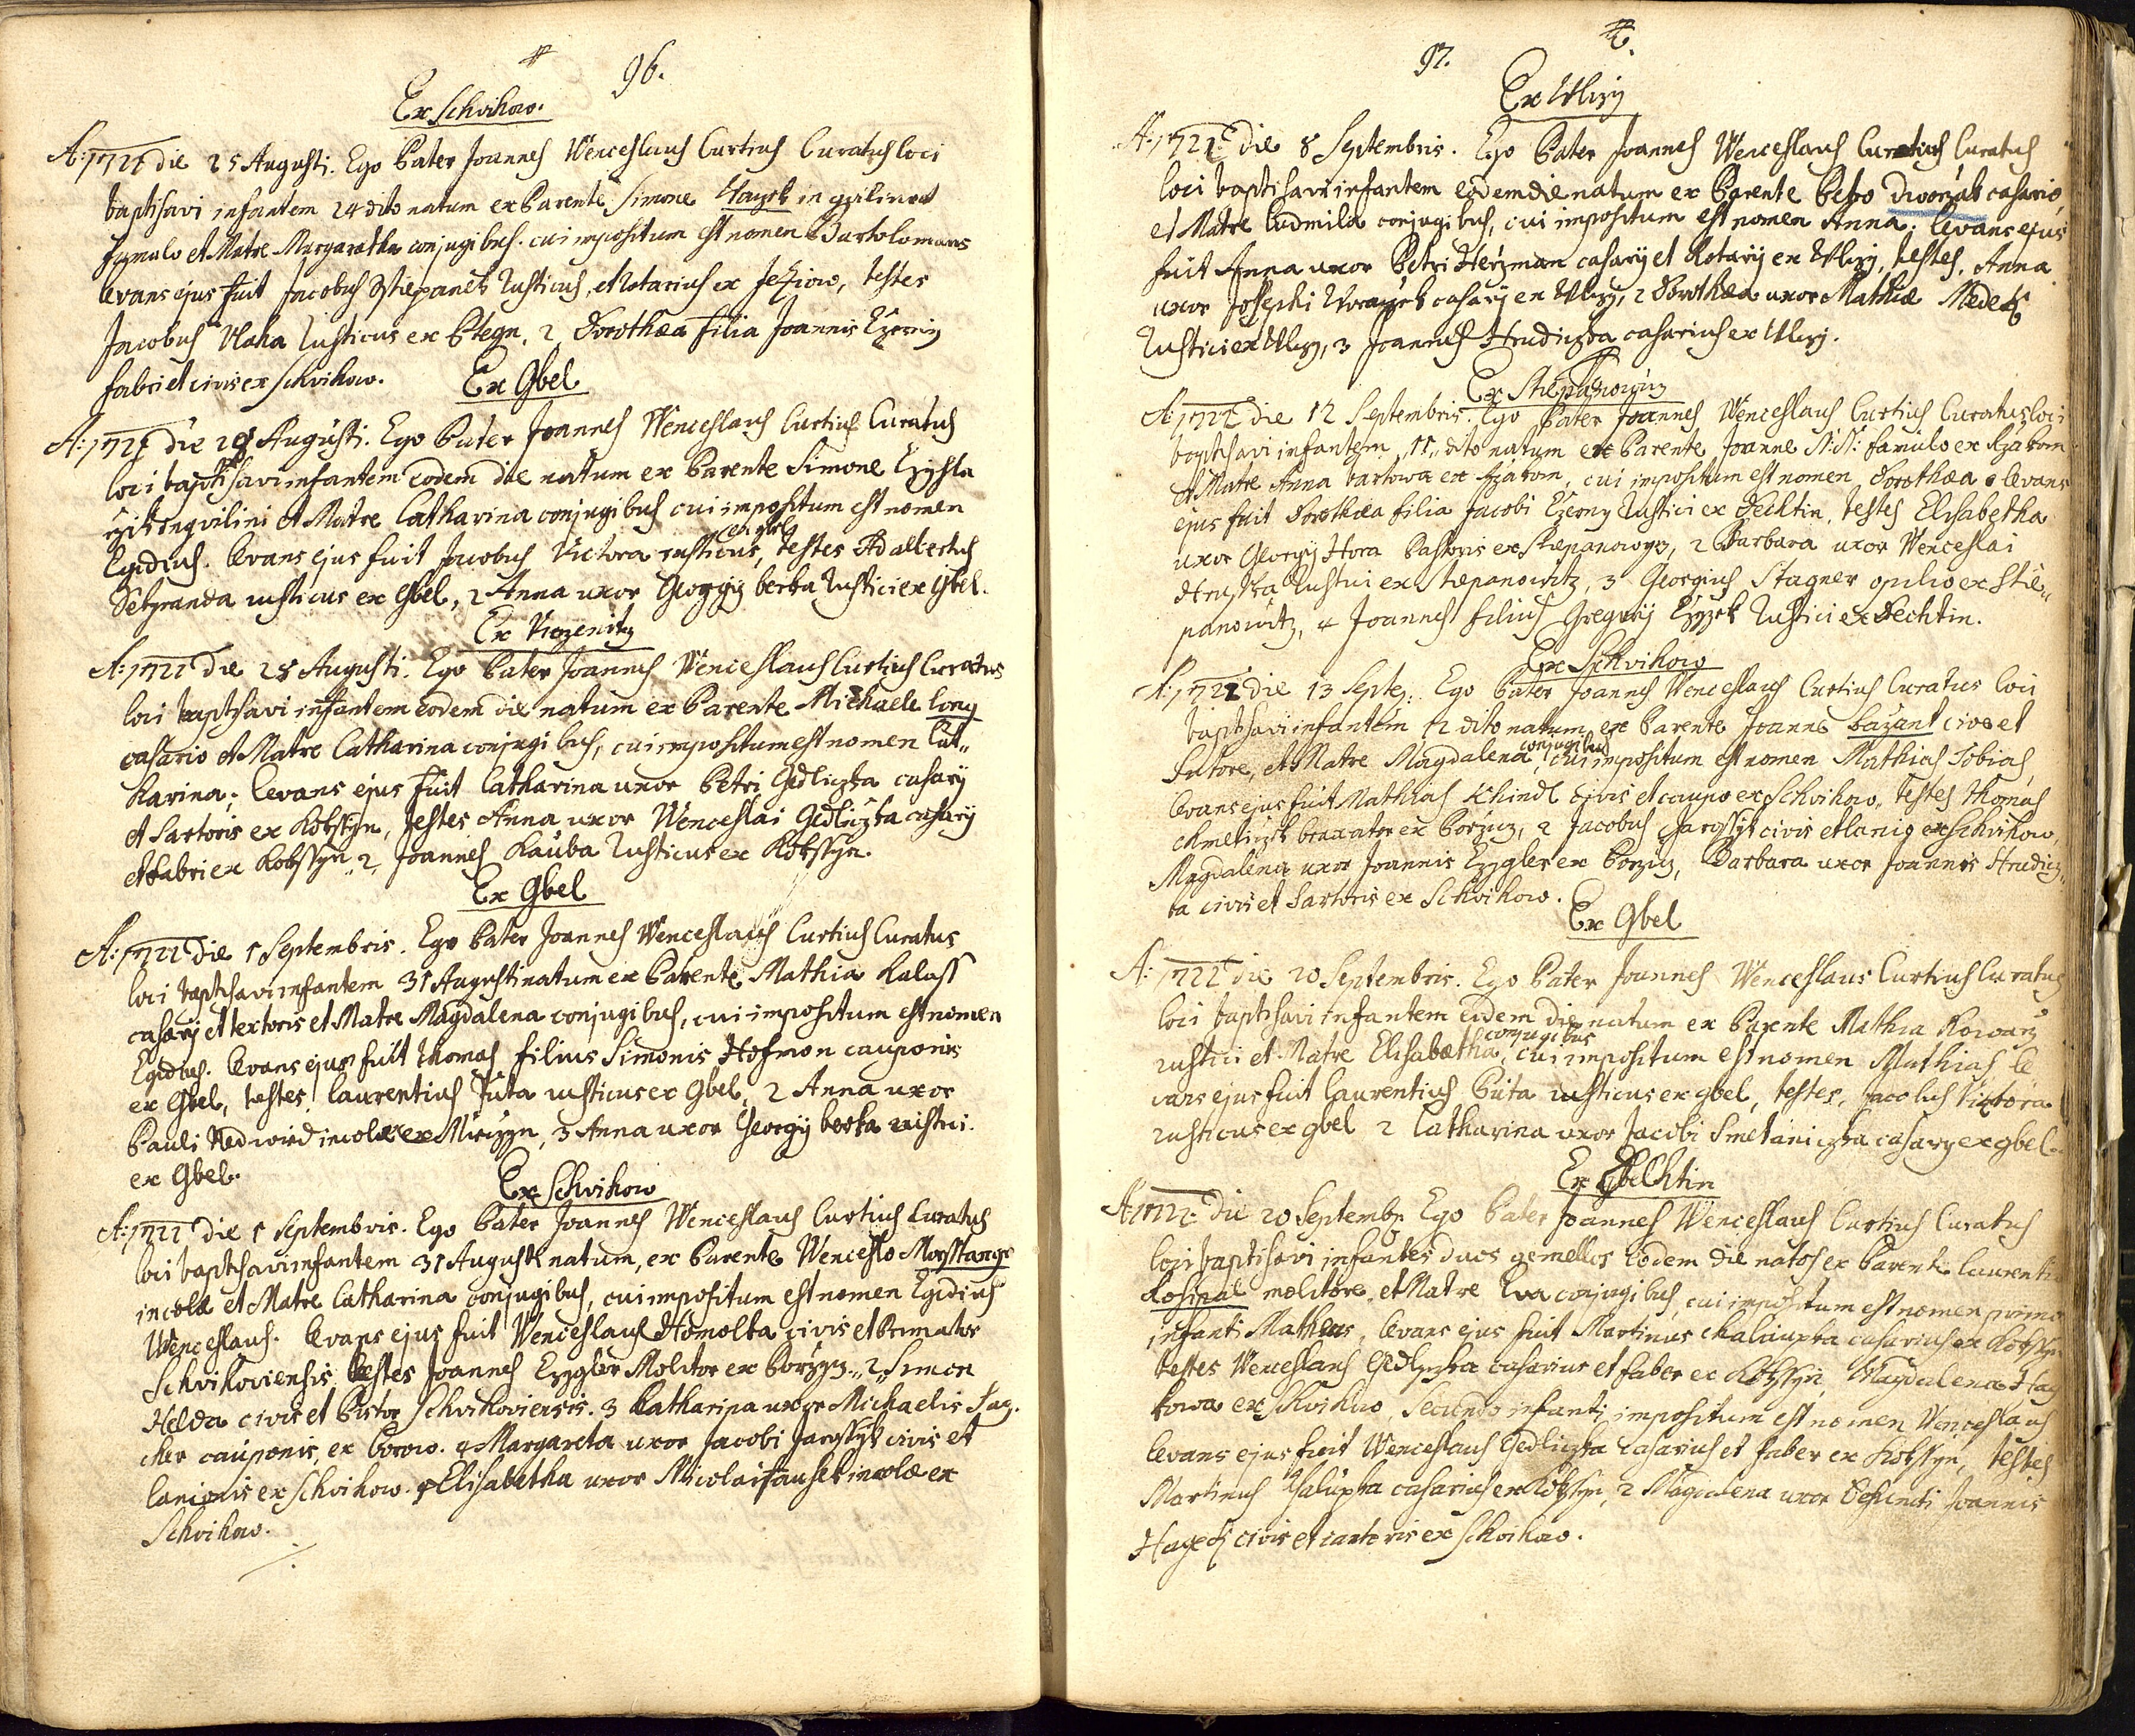 96.
Ex Schvihow.
A: 1722 die 25 Augusti. Ego Pater Joannes Wenceslaus Curtius Curatus loci
baptisavi infantem 24 dito natum ex Parente Simone Hayek inqvilino
famulo et Matre Margaretha conjugibus. cui impositum est nomen Bartolomæus
levans ejus fuit Jacobus Sstiepanek rusticus, et Notarius ex Jeziow, testes
Jacobus Vlaha rusticus ex Btegn. 2 Dorothæa filia Joannis Czerny
fabri et civis ex Schvihow.
Ex Gbel
A: 1722 die 28 Augusti. Ego Pater Joannes Wenceslaus Curtius Curatus
loci baptisavi infantem eodem die natum ex Parente Simone
inqvilini et Matre Catharina conjugibus cui impositum est nomen
Egidius. levans ejus fuit Jacobus Victora rusticus ex gbel, testes Adalbertus
Setzranda rusticus ex Gbel, 2 Anna uxor Georgij berka rustici ex Gbel.
Ex Vic̈zenitz
A: 1722 die 28 Augusti. Ego Pater Joannes Wenceslaus Curtius Curatus
loci baptisavi infantem eodem die natum ex Parente Michaele Cony
casario et Matre Catharina conjugibus, cui impositum est nomen Cat„
harina; levans ejus fuit Catharina uxor Petri Gedliczka casarij
et Sartoris ex Kokssyn, testes Anna uxor Wenceslai Gedliczka casarij
et fabri ex Kokssyn, 2, Joannes Kauba rusticus ex Kokssyn.
Ex Gbel
A: 1722 die 1 Septembris. Ego Pater Joannes Wenceslaus Curtius Curatus
loci baptisavi infantem 31 Augusti natum ex Parente Mathia Kalass
casarij et textoris et Matre Magdalena conjugibus, cui impositum est nomen
Egidius. levans ejus fuit thomas filius Simonis Hofmon cauponis
ex Gbel, testes, laurentius Puta rusticus ex Gbel, 2 Anna uxor
Pauli Nedwied incolæ ex Miecyn, 3 Anna uxor Georgij berka rustici.
ex Gbel.
Ex Schvihow
A: 1722 die 1 Septembris. Ego Pater Joannes Wenceslaus Curtius Curatus
loci baptisavi infantem 31 Augusti natum, ex Parente Wenceslo Morsstangr
incolæ et Matre Catharina conjugibus, cui impositum est nomen Egidius
Wenceslaus. levans ejus fuit Wenceslaus Homolka civis et Senator
Schvihoviensis, testes Joannes Czygler Molitor ex Borzycz, 2, Simon
Helda civis et Pistor Schvihoviensis. 3 Catharina uxor Michaelis Sag.
cher cauponis, ex borow. 4 Margareta uxor Jacobi Jarossyk civis et
lanionis ex Schvihow. 5 Elisabetha uxor Nicolai incolæ ex
Schvihow.
97.
Ex Vlizy
A: 1722 die 8 Septembris. Ego Pater Joannes Wenceslaus Curtius Curatus
loci baptisavi infantem eodem die natum ex Parente Petro dworzak casario,
et Matre Ludmila conjugibus, cui impositum est nomen Anna. levans ejus
fuit Anna uxor Petri Herzman casarij et Notarij ex Vlizy, testes, Anna
uxor Josephi casarij ex Vlizy, 2 Dorothæa uxor Mathiæ Medek
rustici ex Vlizy, 3 Joannes Hrudiczka casarius ex Vlizy.
Ex Stiepanowicz
A: 1722 die 12 Septembris. Ego Pater Joannes Wenceslaus Curtius Curatus loci
baptisavi infantem 11„ dito natum ex Parente Joanne N: N: famulo ex Kzakom
et Matre Anna bartowa ex Kzakom, cui impositum est nomen Dorothæa. levans
ejus fuit Dorothæa filia Jacobi Czerny rustici ex Dechtin, testes Elisabetha
uxor Georgij Hora Pastoris ex Stiepanowycz, 2 Barbara uxor Wenceslai
Hruska rustici ex Stiepanowitz, 3 Georgius Stagner opilio ex Stie„
panowitz, 4 Joannes filius Gregorij Czyzek rustici ex Dechtin.
Ex Schvihow
A: 1722 die 13 Septe: Ego Pater Joannes Wenceslaus Curtius Curatus loci
baptisavi infantem 12 dito natum ex Parente Joanne bazant cive et
Sutore, et Matre Magdalena conjugibus, cui impositum est nomen Mathias Tobias
levans ejus fuit Mathias Khindl civis et caupo ex Schvihow, testes thomas
Chmeliczk braxator ex Borzicz, 2 Jacobus Jarossyk civis et lanio ex Schvihow,
Magdalena uxor Joannis Czygler ex borzicz, Barbara uxor Joannis Hrudicz„
ka civis et Sartoris ex Schvihow.
Ex Gbel
A: 1722 die 20 Septembris. Ego Pater Joannes Wenceslaus Curtius Curatus
loci baptisavi infantem eodem die natum ex Parente Mathia Kowarz
rustici et Matre Elisabetha conjugibus, cui impositum est nomen Mathias le
vans ejus fuit laurentius Puta rusticus ex gbel, testes, Jacobus Victora
rusticus ex gbel 2 Catharina uxor Jacobi Smetaniczka casarij ex gbel.
Ex Dechtin
A: 1722. die 20 Septembr. Ego Pater Joannes Wenceslaus Curtius Curatus
loci baptisavi infantes duos gemellos eodem die natos ex Parente laurentio
Kosinal molitore, et Matre Eva conjugibus, cui impositum est nomen primo
infanti Matheus, levans ejus fuit Martinus Chaluupka casarius ex Kokssyn
testes Wenceslaus Gedlyczka casarius et faber ex Kokssyn, Magdalena Hay
kowa ex Schvihow, Secundo infanti impositum est nomen Wenceslaus
levans ejus fuit Wenceslaus Gedliczka casarius et faber ex Kokssyn, testes
Martinus Chalupka casarius ex Kokssyn, 2 Magdalena uxor defuncti Joannis
Hayek civis et ex Schvihow.